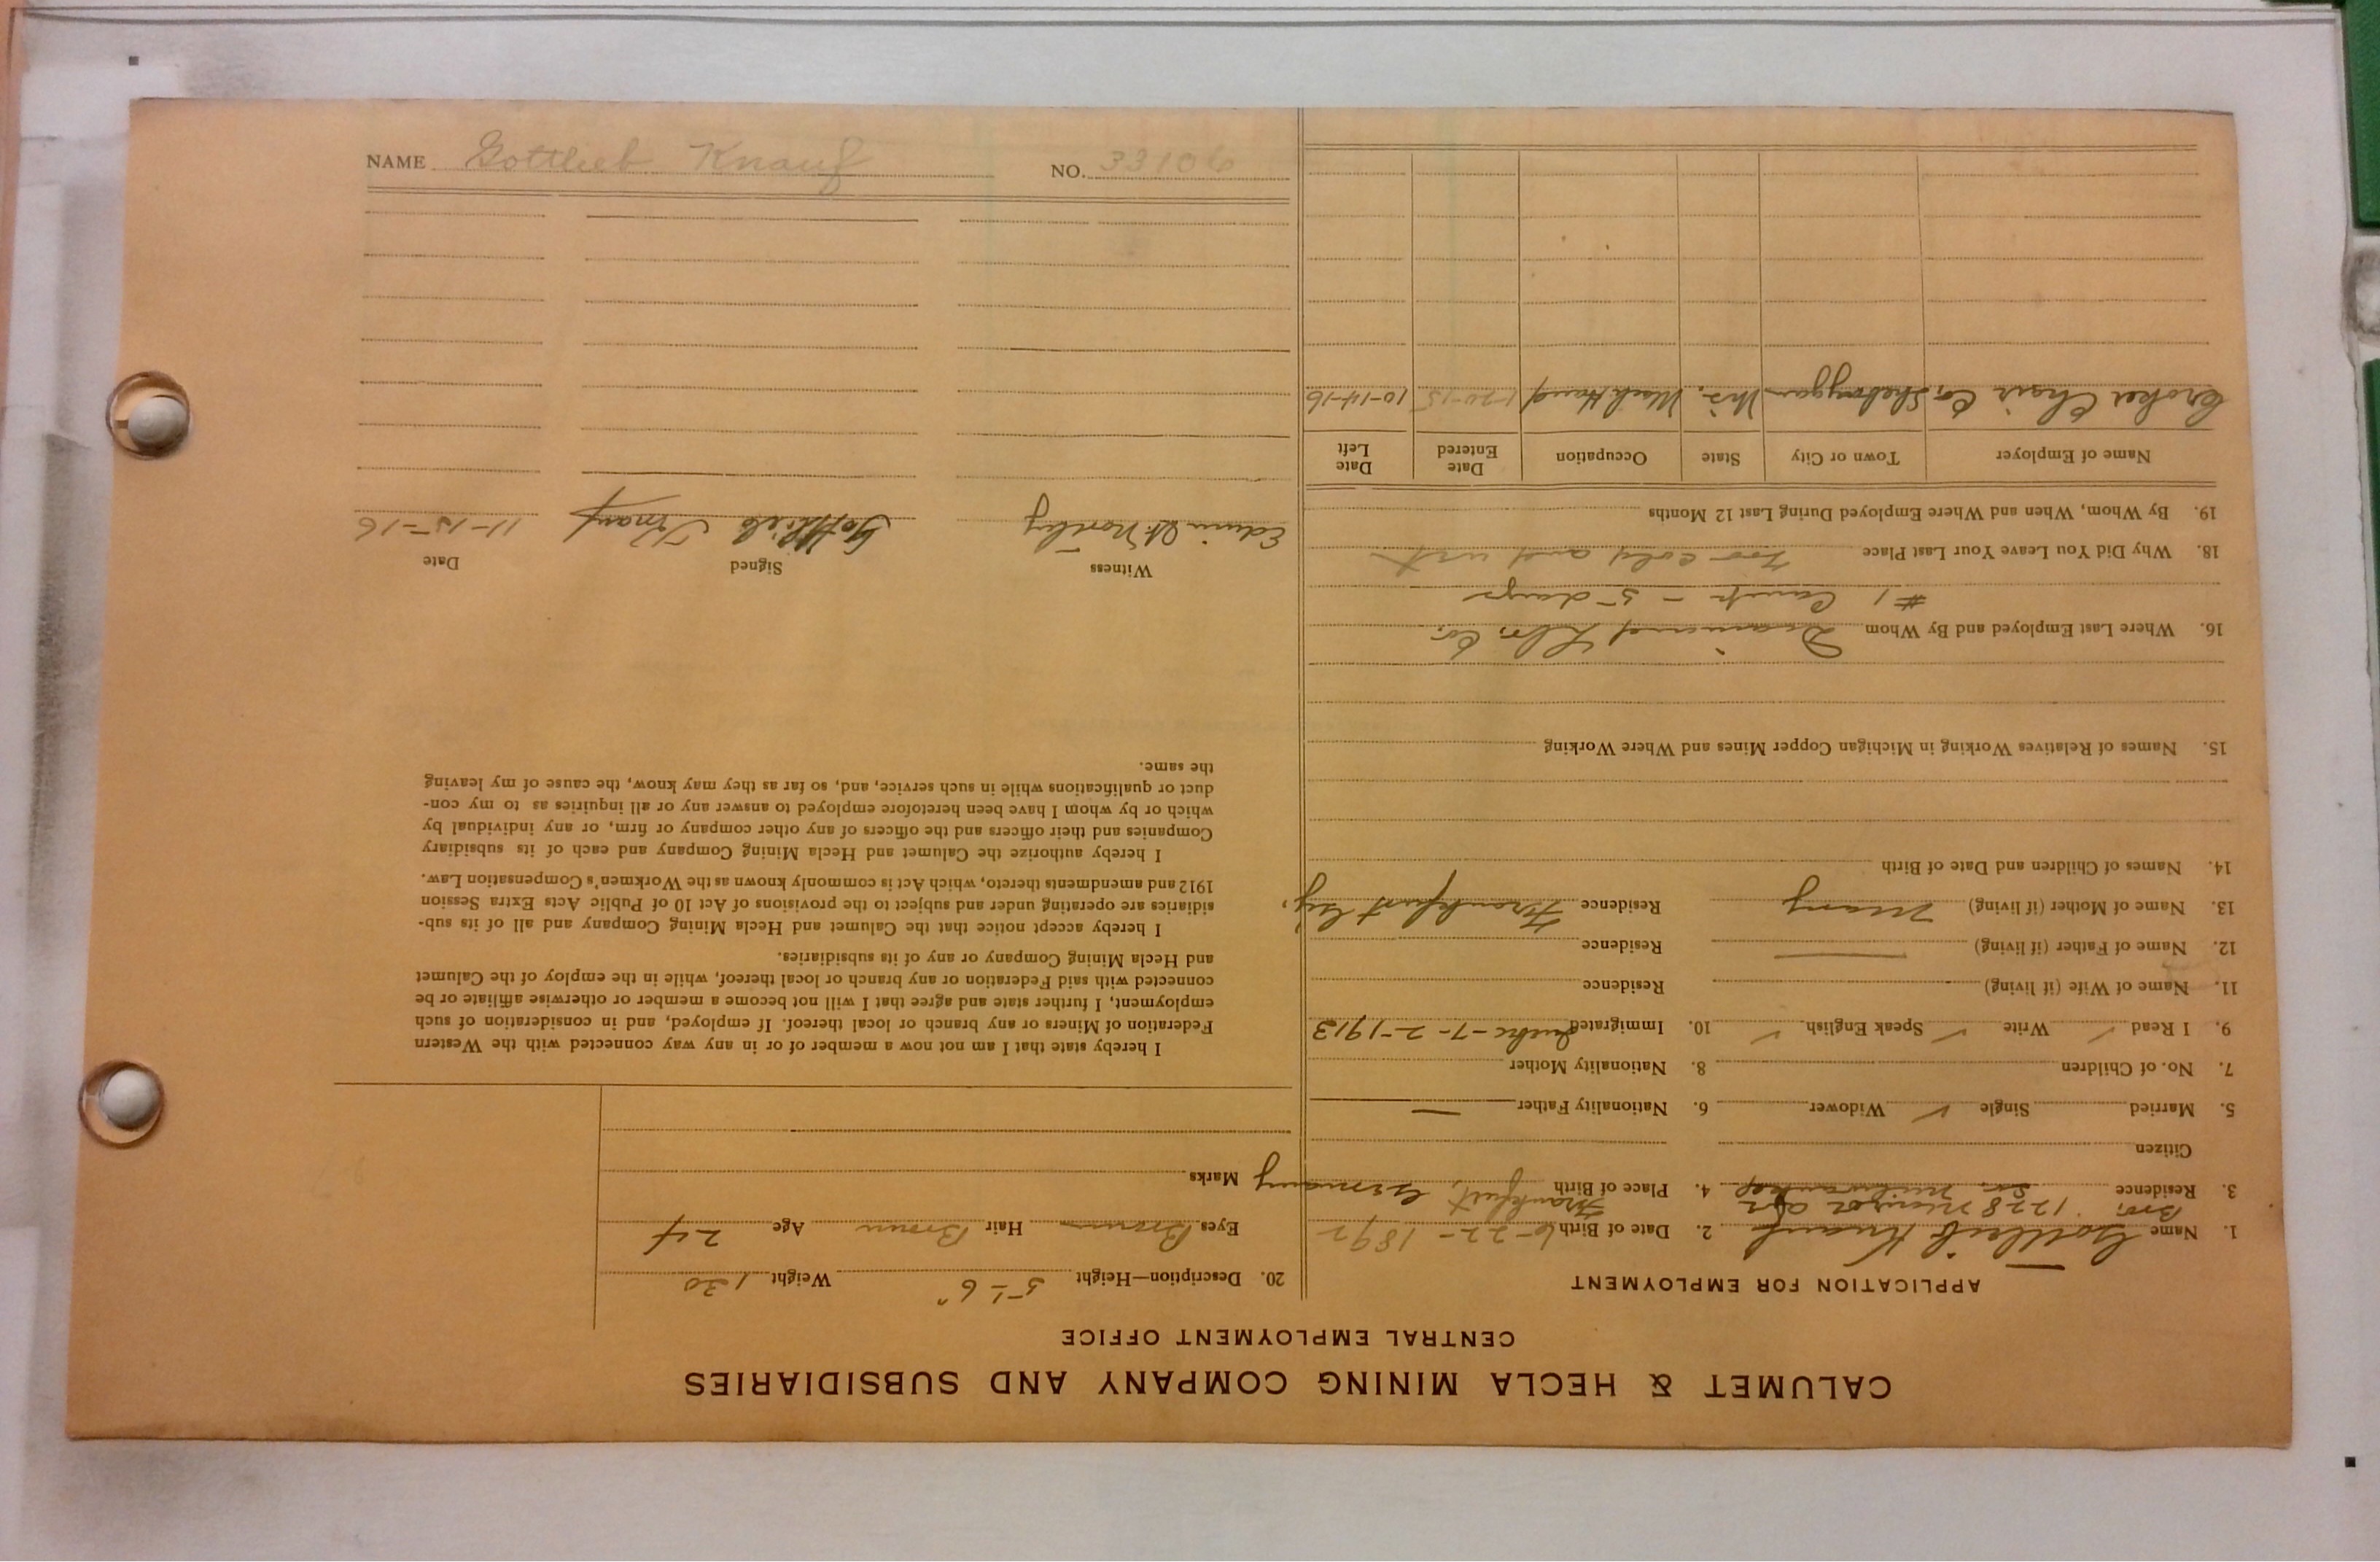 CALUMET & HECLA MINING COMPANY AND SUBSIDIARIES
CENTRAL EMPLOYMENT OFFICE
APPLICATION FOR EMPLOYMENT
1. Name Gottlieb Knauf 2. Date of Birth 6-22-1892
Bro. 1228
3. Residence So. Milwaukee 4. Place of Birth Frankfurt, Germany
Citizen
5. Married Single ✓ Widower 6. Nationality Father —
7. No. of Children 8. Nationality Mother
9. I Read ✓ Write ✓ Speak English ✓ 10. Immigrated Quebec-7-2-1913
11. Name of Wife (if living) Residence
12. Name of Father (if living) — Residence
13. Name of Mother (if living) Mary Residence Frankfurt Gy.
14. Names of Children and Date of Birth
15. Names of Relatives Working in Michigan Copper Mines and Where Working
16. Where Last Employed and By Whom Diamond Lbr. Co.
#1 Camp - 5 days
18. Why Did You Leave Your Last Place Too cold and wet
19. By Whom, When and Where Employed During Last 12 Months
Name of Employer Town or City State Occupation Date Entered Date Left
Crocker Chair Co. Sheboygan Wis. Mach Hand 1-20-15 10-14-16
20. Description—Height 5'-6" Weight 130
Eyes Brown Hair Brown Age 24
Marks
I hereby state that I am not now a member of or in any way connected with the Western
Federation of Miners or any branch or local thereof. If employed, and in consideration of such
employment, I further state and agree that I will not become a member or otherwise affiliate or be
connected with said Federation or any branch or local thereof, while in the employ of the Calumet
and Hecla Mining Company or any of its subsidiaries.
I hereby accept notice that the Calumet and Hecla Mining Company and all of its sub-
sidiaries are operating under and subject to the provisions of Act 10 of Public Acts Extra Session
1912 and amendments thereto, which Act is commonly known as the Workmen's Compensation Law.
I hereby authorize the Calumet and Hecla Mining Company and each of its subsidiary
Companies and their officers and the officers of any other company or firm, or any individual by
which or by whom I have been heretofore employed to answer any or all inquiries as to my con-
duct or qualifications while in such service, and, so far as they may know, the cause of my leaving
the same.
Witness Signed Date
Edwin Gottlieb Knauf 11-15-16
NAME Gottlieb Knauf NO. 33106